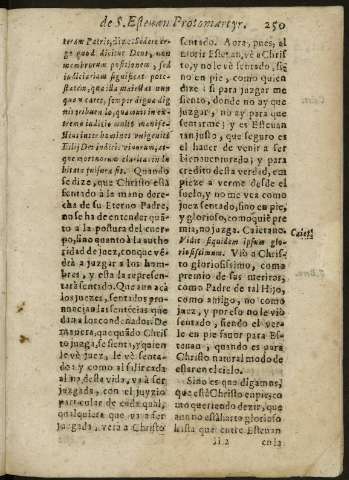 de S. Estevan Protomartyr. 250
teram Patris, dize: Sedere er-
go quod dicitur Deus, non
membrorum positionem, sed
iudiciariam significat pote-
statem, qua illa maiestas nun
quam caret, semper digna dig-
nis tribuens
iudicio multo
unigeniti
Filij Dei
que mortuorum claritas in
bitata fulsura sit. Quando
se dize, que Christo està
sentado à la mano dere-
cha de su Eterno Padre,
no se ha de entender quã-
to a la postura del cuer-
po, sino quanto à la autho
ridad de juez, con que vẽ-
drà a juzgar a los hom-
bres, y esta la represen-
tarà sentado. Que aun acà
los juezes, sentados pro-
nuncian las sentẽcias que
dan a los condenados. De
manera, que quãdo Chris
to juzga, se siente, y quien
le vè juez, le vè senta-
do: y como al salir cada
al ma desta vida, va à ser
juzgada, con el juyzio
particular de cada qual,
qualquiera que va a ser
juzgada, verà a Christo
sentado. Aora, pues, al
morir Estevan, vè a Chris
to, y no le vè sentado, sig
no en pie, como quien
dize: si para juzgar me
siento, donde no ay que
juzgar, no ay para que
sentarme: y es Estevan
tan justo, que seguro es
el haver de venir a ser
bienaventurado; y para
credito desta verdad, em
piece a verme desde el
suelo, y no me vea como
juez sentado, sino en pie,
y glorioso, como quiẽ pre
mia, no juzga. Caietano.
Vidit siquidem ipsum glo-
riosissimum. Viò a Chris-
to gloriosissimo, como
premio de sus meritos,
como Padre de tal Hijo,
como amigo, no como
juez, y por esso no le viò
sentado, siendo el ver-
le en pie favor para Es-
tevan, quando es para
Christo natural modo de
estar en el cielo.
Sino es que digamos,
que està Christo en pie, co
mo queriendo dezir, que
aun no està harto glorioso
hasta que entre Estevan
Caiet.
Ii 2 en la